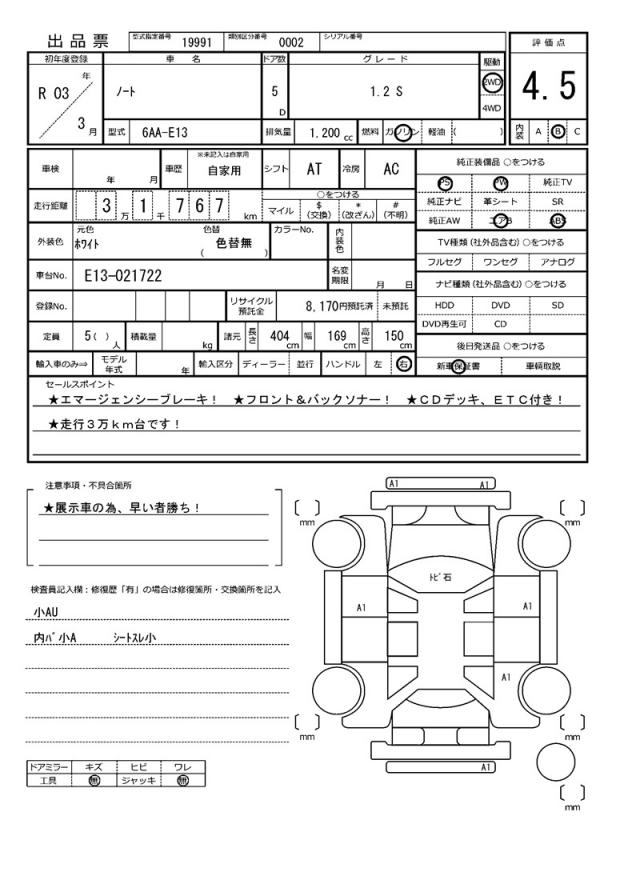 出品票 型式指定番号 19991 類別区分番号 0002 シリアル番号
評価点
4.5
内装 A B C
初年度登録 車名 ドア数 グレード 駆動
R 03 年 3 月 ﾉｰﾄ 5 D 1.2 S 2WD 4WD
型式 6AA-E13 排気量 1.200 cc 燃料 ガソリン 軽油 ( )
車検 年 月 車歴 ※未記入は自家用 自家用 シフト AT 冷房 AC
走行距離 3 万 1 千 7 6 7 km
○をつける
マイル $ (交換) * (改ざん) # (不明)
外装色 元色 ﾎﾜｲﾄ 色替 ( 色替無 ) カラーNo. 内装色
車台No. E13-021722 名変期限 月 日
登録No. リサイクル預託金 8,170円預託済 未預託
定員 5( ) 人 積載量 kg 諸元 長さ 404 cm 幅 169 cm 高さ 150 cm
輸入車のみ⇒ モデル年式 年 輸入区分 ディーラー 並行 ハンドル 左 右
純正装備品 ○をつける
PS PW 純正TV
純正ナビ 革シート SR
純正AW エアB ABS
TV種類(社外品含む)○をつける
フルセグ ワンセグ アナログ
ナビ種類(社外品含む)○をつける
HDD DVD SD
DVD再生可 CD
後日発送品 ○をつける
新車保証書 車輌取説
セールスポイント
★エマージェンシーブレーキ！ ★フロント＆バックソナー！ ★ＣＤデッキ、ＥＴＣ付き！
★走行３万ｋｍ台です！
注意事項・不具合箇所
★展示車の為、早い者勝ち！
検査員記入欄：修復歴「有」の場合は修復箇所・交換箇所を記入
小AU
内ﾊﾞ小A ｼｰﾄｽﾚ小
ドアミラー キズ ヒビ ワレ
工具 無 ジャッキ 無
A1 A1
mm mm
ﾄﾋﾞ石
A1 A1
A1
mm mm
A1
mm